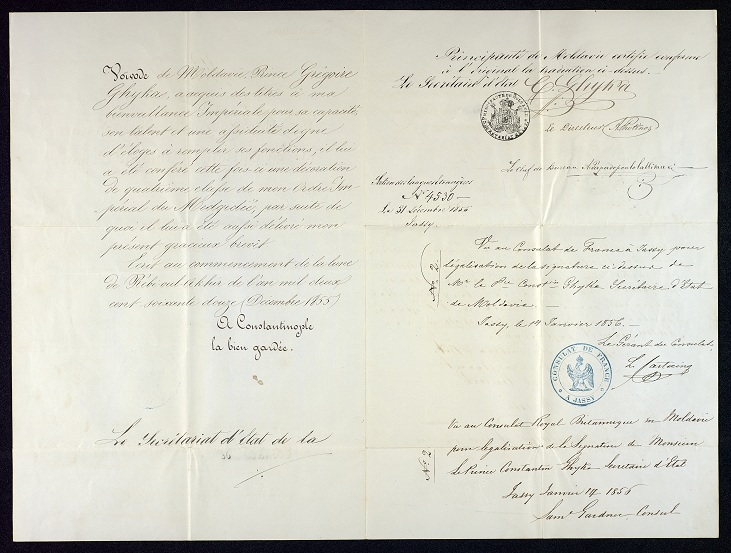 Voivode de Moldavie, Prince Grégoire
Ghykas, a acquis des titres à ma
bienveillance Impériale pour sa capacité,
son talent et une assiduité digne
d'éloges à remplir ses fonctions, il lui
a été conféré cette fois-ci une décoration
de quatrième classe de mon Ordre Im-
périal du Medgidié, par suite de
quoi il lui a été aussi délivré mon
présent gracieux brevêt.
Ecrit au commencement de la lune
de Rébi-oul-akhir de l'an mil deux
cent soixante douze (Décembre 1855)
A Constantinople
la bien gardée.
Le Secrétariat d'Etat de la
Principauté de Moldavie certifie conforme
à l'original la traduction ci-dessus.
Le Secrétaire d'état
C. Ghyka
Le Directeur
Le Chef de Bureau
Section des langues étrangères
No 4530
Le 31 Décembre 1855
Jassy.
No 2.
Vu au Consulat de France à Jassy pour
légalisation de la signature ci-dessus de
Mr. le Pce Constin Ghyka Secrétaire d'Etat
de Moldavie.
Jassy, le 14 Janvier 1856.
Le Gérant du Consulat,
CONSULAT DE FRANCE
A JASSY
No 2
Vu au Consulat Royal Britannique en Moldavie
pour legalisation de la Signature de Monsieur
Le Prince Constantin Ghyka Secretaire d'Etat
Jassy Janvier 14 1856
Saml Gardner Consul